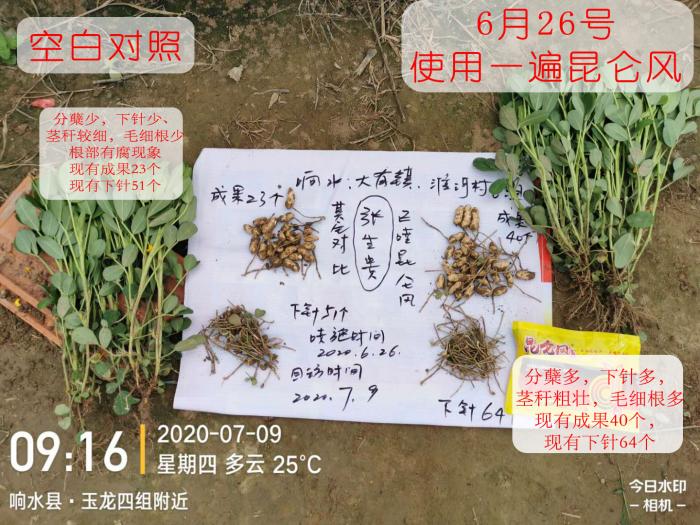 空白对照
6月26号
使用一遍昆仑风
分蘖少，下针少、
茎秆较细，毛细根少
根部有腐现象
现有成果23个
现有下针51个
响水、大有镇、淮河村
成果23个
其它对比
张生贵
正喷昆仑风
成果
40个
下针51个
喷施时间
2020.6.26.
回访时间
2020.7.9
下针64
分蘖多，下针多，
茎秆粗壮，毛细根多
现有成果40个，
现有下针64个
09:16
2020-07-09
星期四 多云 25°C
响水县·玉龙四组附近
今日水印
-相机-